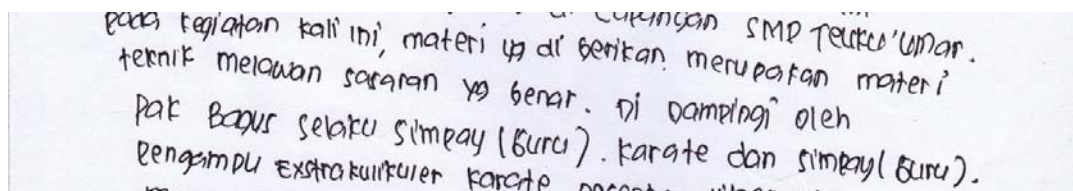 di lapangan SMP Teuku Umar.
pada kegiatan kali ini, materi yg di berikan merupakan materi
teknik melawan sasaran yg benar. Di Dampingi oleh
Pak Bagus selaku Simpay (Guru). Karate dan Simpay (Guru).
Pengampu Exstrakulikuler Karate